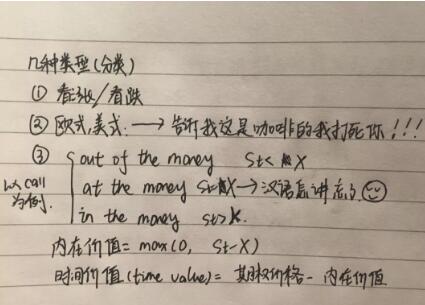 几种类型(分类)
① 看涨/看跌
② 欧式,美式. → 告诉我这是咖啡的我打死你!!!
③ out of the money St< X
以call为例. at the money St=X→汉语怎讲忘了
in the money St>X.
内在价值= max(0, St-X)
时间价值(time value)= 期权价格- 内在价值